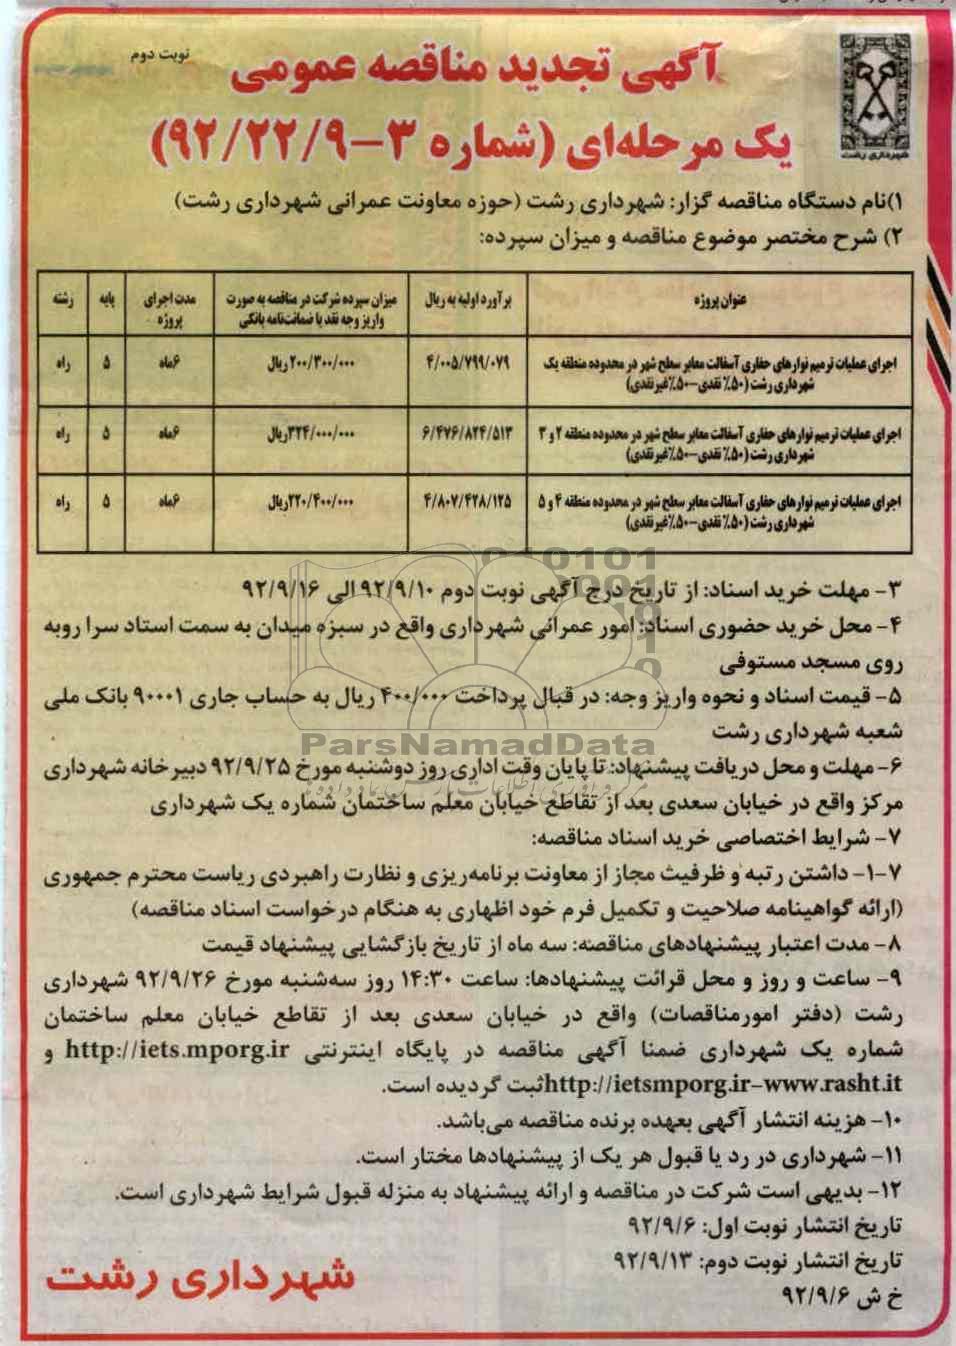 نوبت دوم
آگهی تجدید مناقصه عمومی
یک مرحله‌ای (شماره ۳-۹۲/۲۲/۹)
شهرداری رشت
۱)نام دستگاه مناقصه گزار: شهرداری رشت (حوزه معاونت عمرانی شهرداری رشت)
۲) شرح مختصر موضوع مناقصه و میزان سپرده:
عنوان پروژه | برآورد اولیه به ریال | میزان سپرده شرکت در مناقصه به صورت واریز وجه نقد یا ضمانت‌نامه بانکی | مدت اجرای پروژه | پایه | رشته
اجرای عملیات ترمیم نوارهای حفاری آسفالت معابر سطح شهر در محدوده منطقه یک شهرداری رشت (۵۰٪ نقدی-۵۰٪غیرنقدی) | ۴/۰۰۵/۷۹۹/۰۷۹ | ۲۰۰/۳۰۰/۰۰۰ریال | ۶ماه | ۵ | راه
اجرای عملیات ترمیم نوارهای حفاری آسفالت معابر سطح شهر در محدوده منطقه ۲ و ۳ شهرداری رشت (۵۰٪ نقدی-۵۰٪غیرنقدی) | ۶/۴۷۶/۸۲۴/۵۱۳ | ۳۲۴/۰۰۰/۰۰۰ریال | ۶ماه | ۵ | راه
اجرای عملیات ترمیم نوارهای حفاری آسفالت معابر سطح شهر در محدوده منطقه ۴ و ۵ شهرداری رشت (۵۰٪ نقدی-۵۰٪غیرنقدی) | ۴/۸۰۷/۴۲۸/۱۲۵ | ۲۲۰/۴۰۰/۰۰۰ریال | ۶ماه | ۵ | راه
۳- مهلت خرید اسناد: از تاریخ درج آگهی نوبت دوم ۹۲/۹/۱۰ الی ۹۲/۹/۱۶
۴- محل خرید حضوری اسناد: امور عمرانی شهرداری واقع در سبزه میدان به سمت استاد سرا روبه
روی مسجد مستوفی
۵- قیمت اسناد و نحوه واریز وجه: در قبال پرداخت ۴۰۰/۰۰۰ ریال به حساب جاری ۹۰۰۰۱ بانک ملی
شعبه شهرداری رشت
ParsNamadData
۶- مهلت و محل دریافت پیشنهاد: تا پایان وقت اداری روز دوشنبه مورخ ۹۲/۹/۲۵ دبیرخانه شهرداری
مرکز واقع در خیابان سعدی بعد از تقاطع خیابان معلم ساختمان شماره یک شهرداری
۷- شرایط اختصاصی خرید اسناد مناقصه:
۷-۱- داشتن رتبه و ظرفیت مجاز از معاونت برنامه‌ریزی و نظارت راهبردی ریاست محترم جمهوری
(ارائه گواهینامه صلاحیت و تکمیل فرم خود اظهاری به هنگام درخواست اسناد مناقصه)
۸- مدت اعتبار پیشنهادهای مناقصه: سه ماه از تاریخ بازگشایی پیشنهاد قیمت
۹- ساعت و روز و محل قرائت پیشنهادها: ساعت ۱۴:۳۰ روز سه‌شنبه مورخ ۹۲/۹/۲۶ شهرداری
رشت (دفتر امورمناقصات) واقع در خیابان سعدی بعد از تقاطع خیابان معلم ساختمان
شماره یک شهرداری ضمنا آگهی مناقصه در پایگاه اینترنتی http://iets.mporg.ir و
http://ietsmporg.ir-www.rasht.itثبت گردیده است.
۱۰- هزینه انتشار آگهی بعهده برنده مناقصه می‌باشد.
۱۱- شهرداری در رد یا قبول هر یک از پیشنهادها مختار است.
۱۲- بدیهی است شرکت در مناقصه و ارائه پیشنهاد به منزله قبول شرایط شهرداری است.
تاریخ انتشار نوبت اول: ۹۲/۹/۶
تاریخ انتشار نوبت دوم: ۹۲/۹/۱۳
خ ش ۹۲/۹/۶
شهرداری رشت